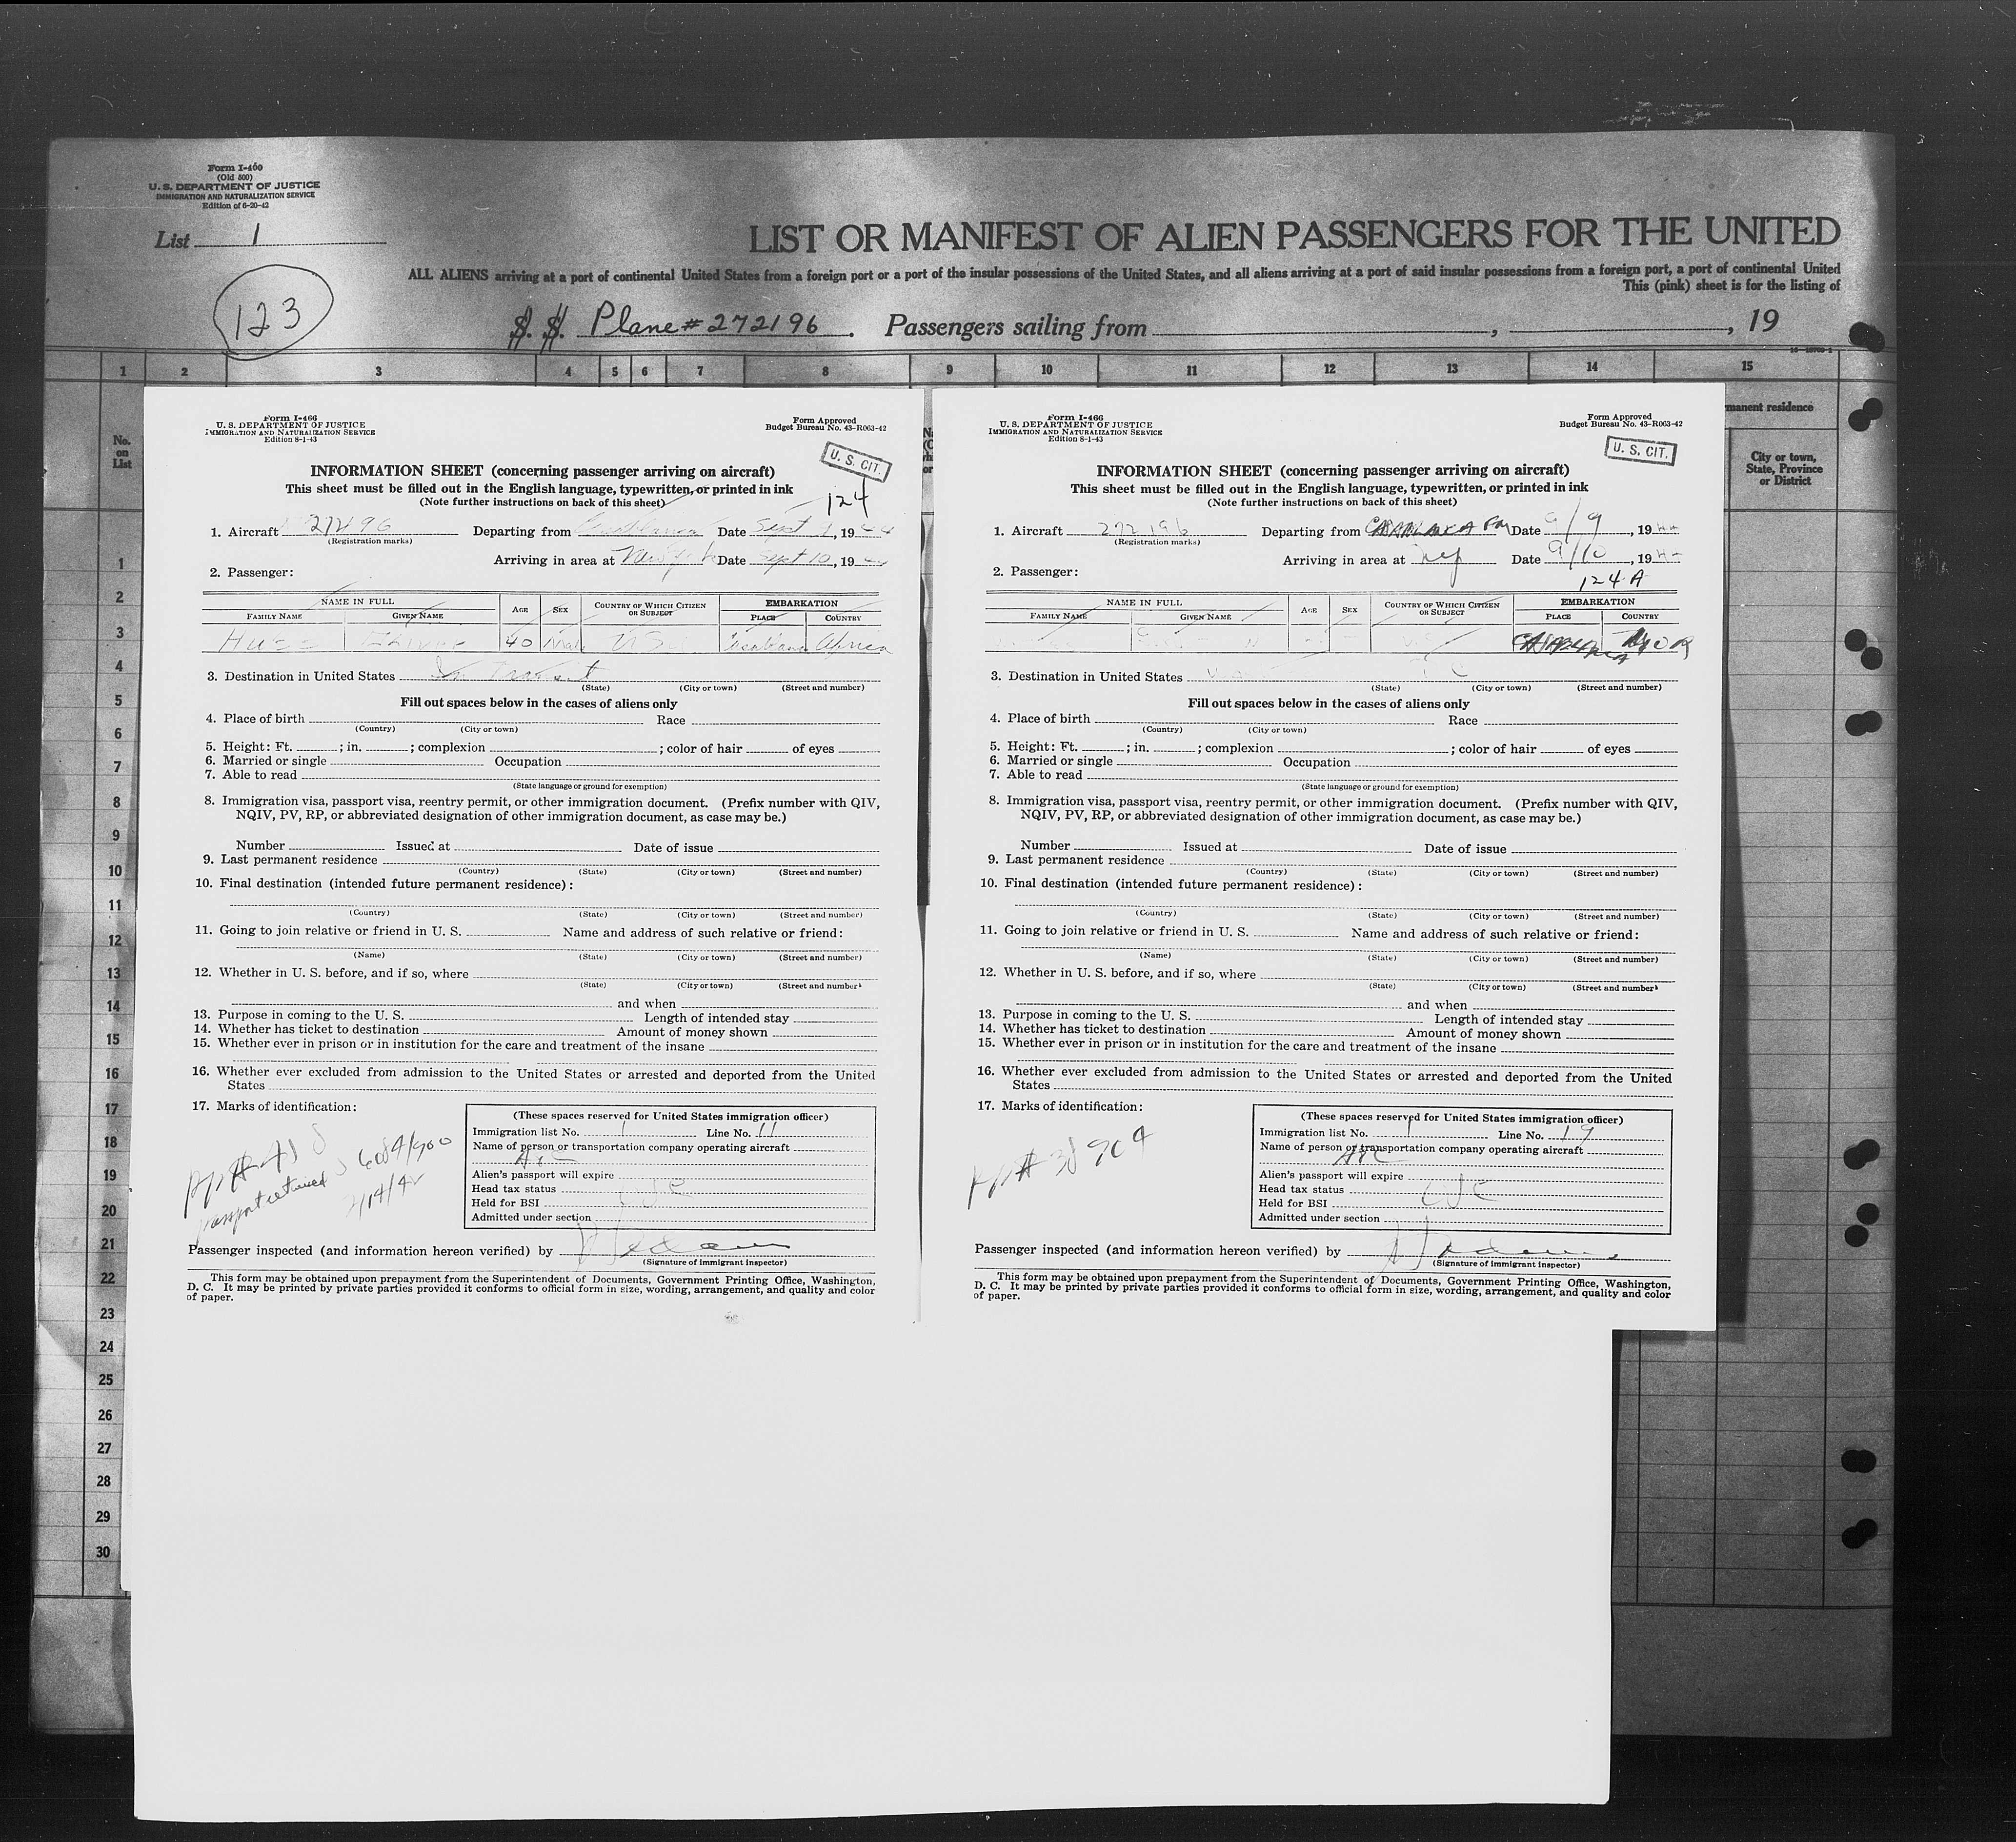 Form I-460
(Old 500)
U. S. DEPARTMENT OF JUSTICE
IMMIGRATION AND NATURALIZATION SERVICE
Edition of 6-20-42
List 1
LIST OR MANIFEST OF ALIEN PASSENGERS FOR THE UNITED
ALL ALIENS arriving at a port of continental United States from a foreign port or a port of the insular possessions of the United States, and all aliens arriving at a port of said insular possessions from a foreign port, a port of continental United
This (pink) sheet is for the listing of
123
S. S. Plane # 272196. Passengers sailing from , , 19
1 2 3 4 5 6 7 8 9 10 11 12 13 14 15
No. on List
manent residence
City or town, State, Province or District
1
2
3
4
5
6
7
8
9
10
11
12
13
14
15
16
17
18
19
20
21
22
23
24
25
26
27
28
29
30
Form I-466
U. S. DEPARTMENT OF JUSTICE
IMMIGRATION AND NATURALIZATION SERVICE
Edition 8-1-43
Form Approved
Budget Bureau No. 43-R063-42
U. S. CIT.
INFORMATION SHEET (concerning passenger arriving on aircraft)
This sheet must be filled out in the English language, typewritten, or printed in ink
(Note further instructions on back of this sheet)
124
1. Aircraft Departing from Date Sept , 19 44
(Registration marks)
Arriving in area at New York Date Sept 10, 19
2. Passenger:
NAME IN FULL AGE SEX COUNTRY OF WHICH CITIZEN OR SUBJECT EMBARKATION
FAMILY NAME GIVEN NAME PLACE COUNTRY
40 Male US Casablanca Africa
3. Destination in United States In Transit
(State) (City or town) (Street and number)
Fill out spaces below in the cases of aliens only
4. Place of birth Race
(Country) (City or town)
5. Height: Ft. ; in. ; complexion ; color of hair of eyes
6. Married or single Occupation
7. Able to read
(State language or ground for exemption)
8. Immigration visa, passport visa, reentry permit, or other immigration document. (Prefix number with QIV,
NQIV, PV, RP, or abbreviated designation of other immigration document, as case may be.)
Number Issued at Date of issue
9. Last permanent residence
(Country) (State) (City or town) (Street and number)
10. Final destination (intended future permanent residence):
(Country) (State) (City or town) (Street and number)
11. Going to join relative or friend in U. S. Name and address of such relative or friend:
(Name) (State) (City or town) (Street and number)
12. Whether in U. S. before, and if so, where
(State) (City or town) (Street and number)
and when
13. Purpose in coming to the U. S. Length of intended stay
14. Whether has ticket to destination Amount of money shown
15. Whether ever in prison or in institution for the care and treatment of the insane
16. Whether ever excluded from admission to the United States or arrested and deported from the United
States
17. Marks of identification:
(These spaces reserved for United States immigration officer)
Immigration list No. 1 Line No. 11
Name of person or transportation company operating aircraft
Alien's passport will expire
Head tax status
Held for BSI
Admitted under section
Passenger inspected (and information hereon verified) by
(Signature of immigrant inspector)
This form may be obtained upon prepayment from the Superintendent of Documents, Government Printing Office, Washington,
D. C. It may be printed by private parties provided it conforms to official form in size, wording, arrangement, and quality and color
of paper.
Form I-466
U. S. DEPARTMENT OF JUSTICE
IMMIGRATION AND NATURALIZATION SERVICE
Edition 8-1-43
Form Approved
Budget Bureau No. 43-R063-42
U. S. CIT.
INFORMATION SHEET (concerning passenger arriving on aircraft)
This sheet must be filled out in the English language, typewritten, or printed in ink
(Note further instructions on back of this sheet)
1. Aircraft 272196 Departing from Date 9/9, 19 44
(Registration marks)
Arriving in area at NY Date 9/10, 19
2. Passenger:
124 A
NAME IN FULL AGE SEX COUNTRY OF WHICH CITIZEN OR SUBJECT EMBARKATION
FAMILY NAME GIVEN NAME PLACE COUNTRY
3. Destination in United States
(State) (City or town) (Street and number)
Fill out spaces below in the cases of aliens only
4. Place of birth Race
(Country) (City or town)
5. Height: Ft. ; in. ; complexion ; color of hair of eyes
6. Married or single Occupation
7. Able to read
(State language or ground for exemption)
8. Immigration visa, passport visa, reentry permit, or other immigration document. (Prefix number with QIV,
NQIV, PV, RP, or abbreviated designation of other immigration document, as case may be.)
Number Issued at Date of issue
9. Last permanent residence
(Country) (State) (City or town) (Street and number)
10. Final destination (intended future permanent residence):
(Country) (State) (City or town) (Street and number)
11. Going to join relative or friend in U. S. Name and address of such relative or friend:
(Name) (State) (City or town) (Street and number)
12. Whether in U. S. before, and if so, where
(State) (City or town) (Street and number)
and when
13. Purpose in coming to the U. S. Length of intended stay
14. Whether has ticket to destination Amount of money shown
15. Whether ever in prison or in institution for the care and treatment of the insane
16. Whether ever excluded from admission to the United States or arrested and deported from the United
States
17. Marks of identification:
(These spaces reserved for United States immigration officer)
Immigration list No. 1 Line No. 19
Name of person or transportation company operating aircraft
Alien's passport will expire
Head tax status
Held for BSI
Admitted under section
Passenger inspected (and information hereon verified) by
(Signature of immigrant inspector)
This form may be obtained upon prepayment from the Superintendent of Documents, Government Printing Office, Washington,
D. C. It may be printed by private parties provided it conforms to official form in size, wording, arrangement, and quality and color
of paper.